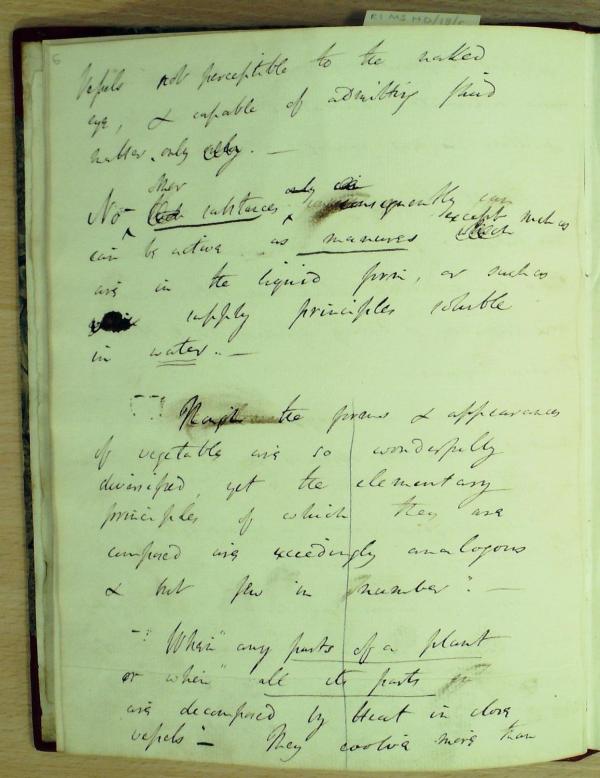 RI MS HD/18/c
6
Vessels not perceptible to the naked
eye, & capable of admitting fluid
matter only only. —
other only
No substances consequently can
can be active as manures except such as
are in the liquid form, or such as
supply principles soluble
in water. —
Though the forms & appearances
of vegetable are so wonderfully
diversified, yet the elementary
principles of which they are
composed are exceedingly analogous
& but few in number". —
—"When" any parts of a plant
or when" all its parts
are decomposed by Heat in close
vessels — They evolve more than